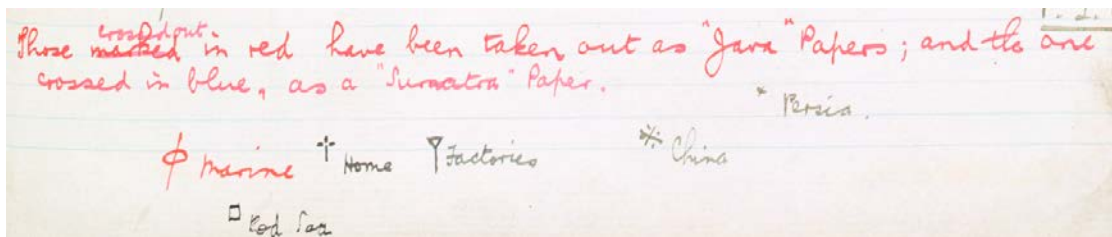 crossed out
Those marked in red have been taken out as "Java" Papers; and the one
crossed in blue, as a "Sumatra" Paper.
* Persia.
ϕ Marine † Home Factories ※ China
□ Red Sea